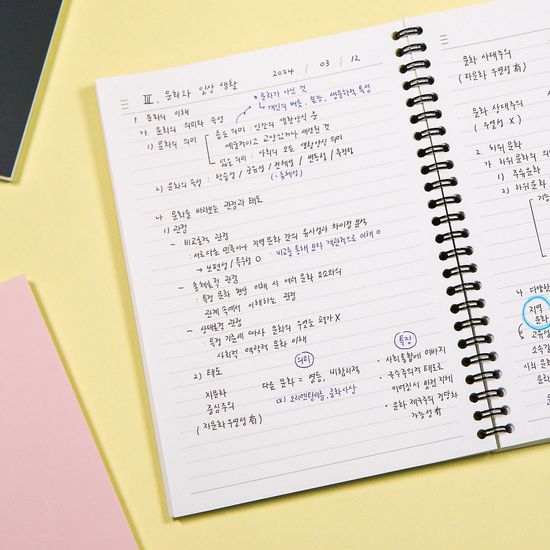 2024 / 03 / 12
Ⅲ. 문화와 일상 생활
* 문화가 아닌 것
· 개인의 버릇, 본능, 생물학적 특성
1. 문화의 이해
가. 문화의 의미와 속성
1) 문화의 의미
좁은 의미 : 인간의 생활양식 중
예술적이고 교양있거나 세련된 것
넓은 의미 : 사회의 모든 생활양식 의미
2) 문화의 속성 : 학습성 / 공유성 / 전체성 / 변동성 / 축적성
(총체성)
나. 문화를 바라보는 관점과 태도
1) 관점
- 비교론적 관점
: 서로 다른 민족이나 지역 문화 간의 유사성과 차이점 분석
→ 보편성 / 특수성 O · 비교를 통해 보다 객관적으로 이해 O
- 총체론적 관점
: 특정 문화 현상 이해 시 여러 문화 요소와의
관계 속에서 이해하는 관점
- 상대론적 관점
: 특정 기준에 따라 문화의 우열을 평가 X
사회적 맥락적 문화 이해
2) 태도
의미
특징
자문화
중심주의
(자문화 우월성 有)
다른 문화 = 열등, 비합리적
ex) 오리엔탈리즘, 중화사상
· 사회통합에 이바지
· 국수주의적 태도로
이어질시 발전 지체
· 문화 제국주의 정당화
가능성 有
문화 사대주의
(타문화 우월성 有)
문화 상대주의
(우열성 X)
2. 하위 문화
가. 하위문화의 의
1) 주류문화
2) 하위문화
기능
나. 다양한
지역
문화
고유성
소속감
사회 문화
문화